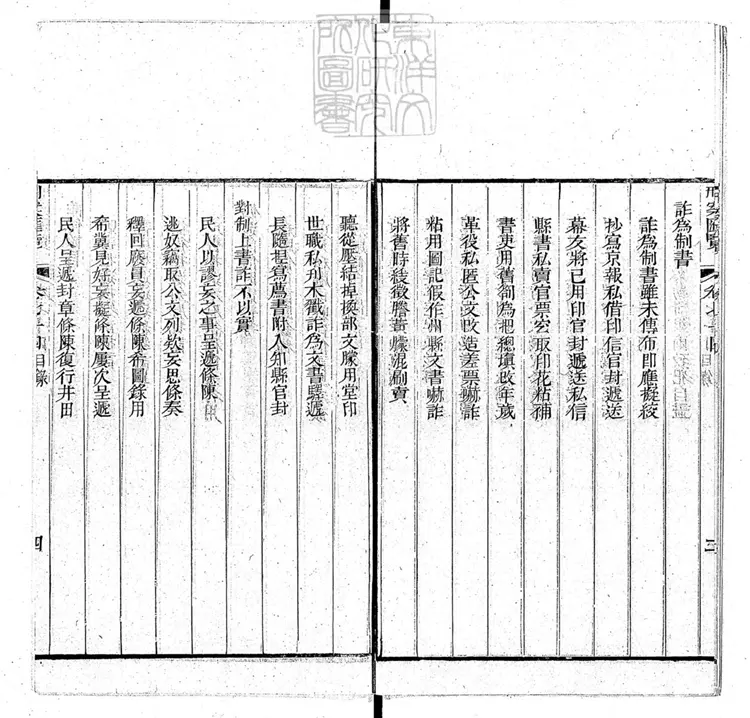 東洋文
化研究
所圖書
刑案匯覽
目錄
三
詐為制書
詐為制書雖未傳布即應擬絞
抄寫京報私借印信官封遞送
幕友將已用印官封遞送私信
縣書私賣官票空取印花粘補
書吏用舊劄為把總填改年歲
革役私匿公文改造差票嚇詐
粘用圖記假作州縣文書嚇詐
將舊時綾徵謄黃朦混刷賣
聽從壓結掉換部文朦用堂印
世職私刋木戳詐為文書馹遞
長隨揑寫薦書附入知縣官封
對制上書詐不以實
民人以謬妄之事呈遞條陳
逃奴竊取公文列款妄思條奏
釋回廢員妄遞條陳希圖錄用
希冀見好妄擬條陳屢次呈遞
民人呈遞封章條陳復行井田
目錄
四